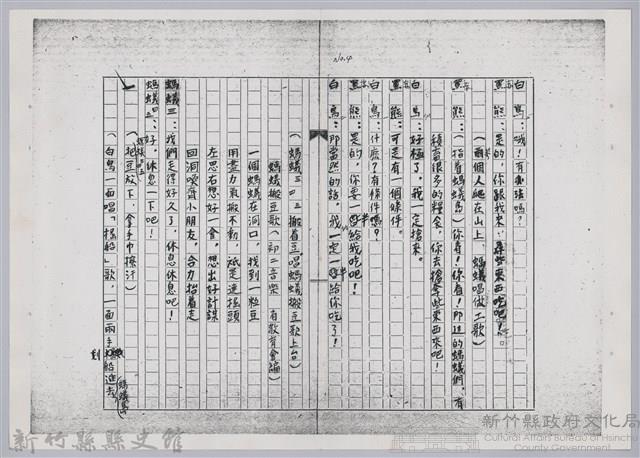 No.4
白鳥：哦！有辦法嗎？
黑熊：是的，你跟我來，弄些東西吃吧！
（兩個人爬在山上，螞蟻唱做工歌）
黑熊：（指着螞蟻們）你看！你看！那邊的螞蟻們，有
積蓄很多的糧食，你去搶拿些東西來吧！
白鳥：好極了，我一定搶來。
黑熊：可是有一個條件。
白鳥：什麼？有條件嗎？
黑熊：是的，你要一半給我吃吧！
白鳥：那當然的話，我一定一半給你吃了！
（螞蟻三、四，搬着豆唱螞蟻搬豆歌上台）
螞蟻搬豆歌（初二音樂 有教育會編）
一個螞蟻在洞口，找到一粒豆
用盡力氣搬不動，祇是連搖頭
左思右想好一會，想出好計謀
回洞喚齊小朋友，合力抬着走
螞蟻三：我們走得好久了，休息休息吧！
螞蟻四：好，休息一下吧！
（把豆放下，拿手巾擦汗）
（白鳥一面唱「搖船」歌，一面兩手搖船進去）
新竹縣縣史館
新竹縣政府文化局
Cultural Affairs Bureau of Hsinchu
County Government